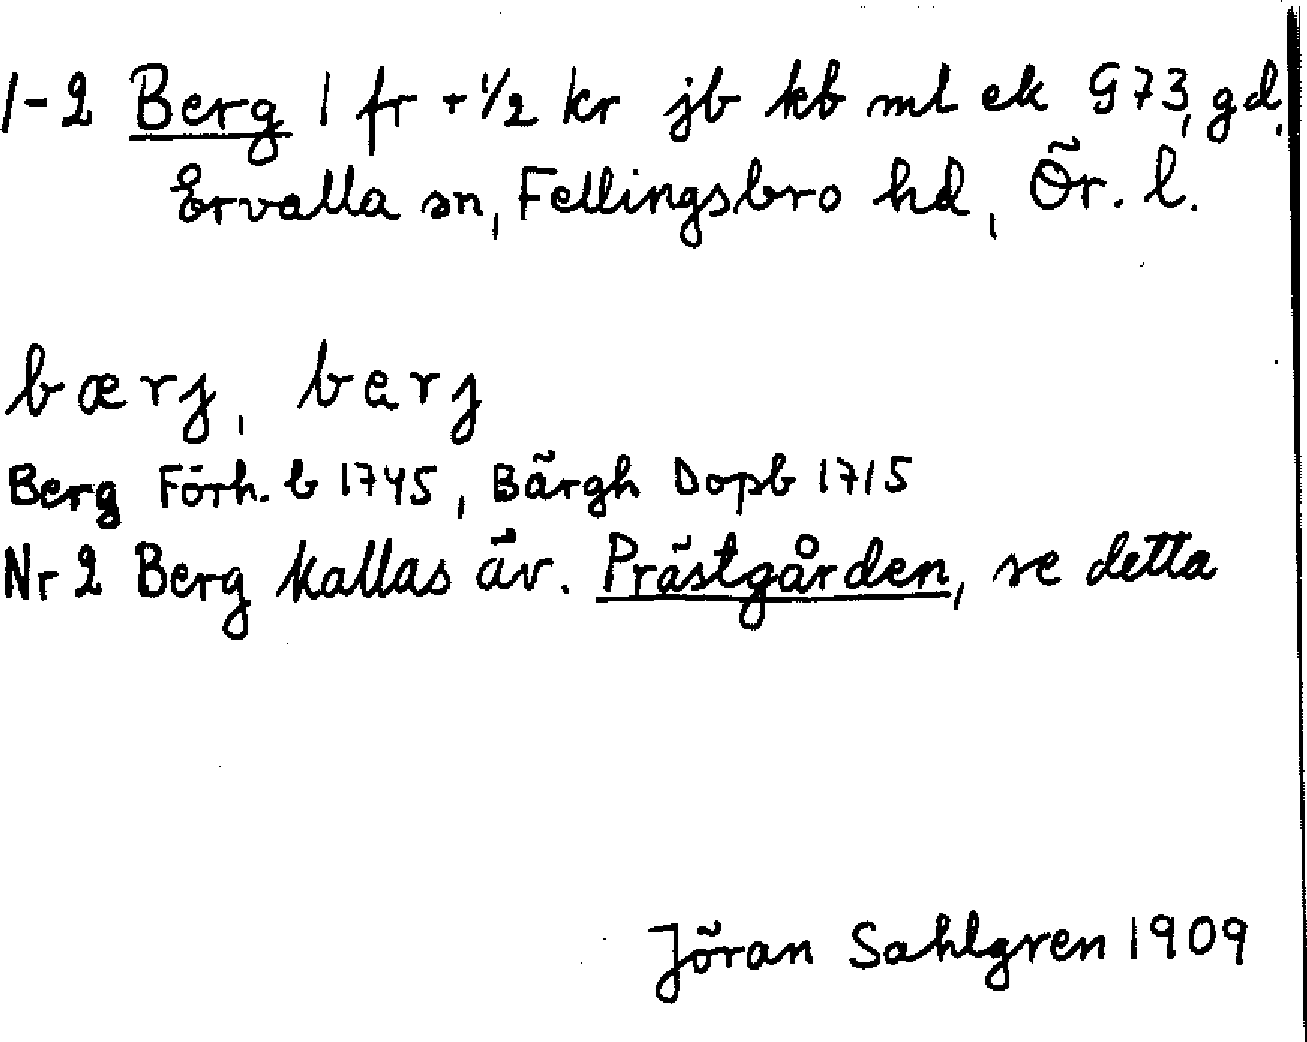 1-2 Berg 1 fr + 1/2 kr jb kb ml ek G73, gd.
Ervalla sn, Fellingsbro hd, Ör. l.
bærj, berj
Berg Förh. b 1745, Bärgh Dopb 1715
Nr 2 Berg kallas äv. Prästgården, se detta
Jöran Sahlgren 1909